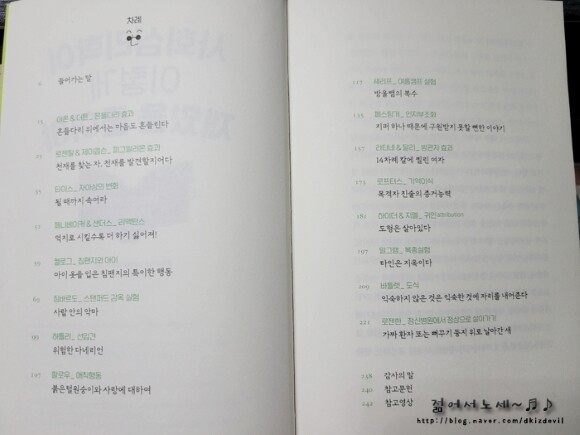 차례
6 들어가는 말
13 아론 & 더튼_ 흔들다리 효과
흔들다리 위에서는 마음도 흔들린다
로젠탈 & 제이콥슨_ 피그말리온 효과
천재를 찾는 자, 천재를 발견할지어다
35 타이스_ 자아상의 변화
될 때까지 속여라
51 페니베이커 & 샌더스_ 리액턴스
억지로 시킬수록 더 하기 싫어져!
59 켈로그_ 침팬지의 아이
아이 옷을 입은 침팬지의 특이한 행동
69 짐바르도_ 스탠퍼드 감옥 실험
사람 안의 악마
99 허틀러_ 선입견
위험한 다네리언
107 할로우_ 애착행동
붉은털원숭이와 사랑에 대하여
127 셰리프_ 여름캠프 실험
방울뱀의 복수
페스팅거_ 인지부조화
지퍼 하나 때문에 구원받지 못할 뻔한 이야기
157 라타네 & 달리_ 방관자 효과
14차례 칼에 찔린 여자
173 로프터스_ 기억이식
목격자 진술의 증거능력
181 하이더 & 지멜_ 귀인attribution
도형은 살아있다
197 밀그램_ 복종실험
타인은 지옥이다
209 바틀렛_ 도식
익숙하지 않은 것은 익숙한 것에 자리를 내어준다
221 로젠한_ 정신병원에서 정상으로 살아가기
가짜 환자 또는 뻐꾸기 둥지 위로 날아간 새
238 감사의 말
240 참고문헌
242 참고영상
젊어서노세~♬♪
http://blog.naver.com/dkizdevil